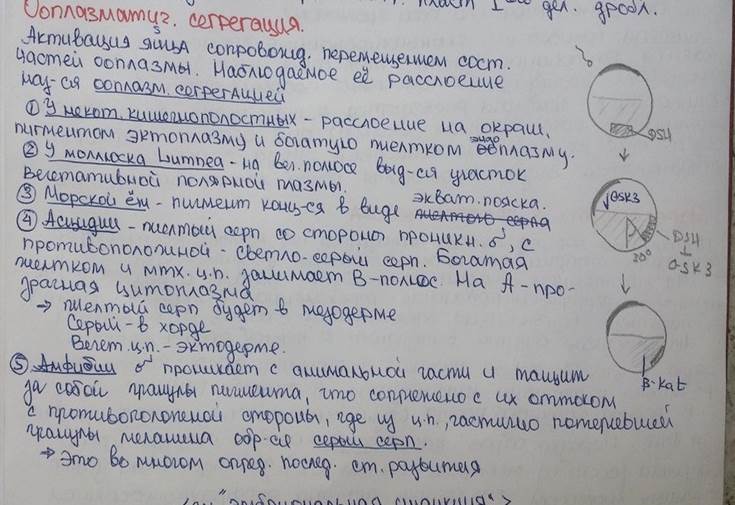 пласт I дел. дробл.
Ооплазматич. сегрегация.
Активация яйца сопровожд. перемещением сост.
частей ооплазмы. Наблюдаемое её расслоение
наз-ся ооплазм. сегрегацией
① У некот. кишечнополостных - расслоение на окраш.
пигментом эктоплазму и богатую желтком эндоплазму.
② У моллюска Limnea - на вег. полюсе выд-ся участок
вегетативной полярной плазмы.
③ Морской ёж - пигмент конц-ся в виде экват. пояска.
желтого серпа
④ Асцидии - желтый серп со стороны проникн. ♂, с
противоположной - светло-серый серп. Богатая
желтком и мтх. ц.п. занимает В-полюс. На А - про-
зрачная цитоплазма
→ желтый серп будет в мезодерме
Серый - в хорде
Вегет. ц.п. - эктодерме.
⑤ Амфибии ♂ проникает с анимальной части и тащит
за собой гранулы пигмента, что сопряжено с их оттоком
с противоположной стороны, где из ц.п., частично потерявшей
гранулы меланина обр-ся серый серп.
→ Это во многом опред. послед. ст. развития
DSH
GSK3
DSH
⊥
GSK3
30°
β-kat
"эмбриональная индукция" >